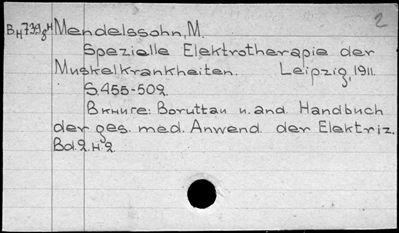 2
Вн739gн Mendelssohn, M.
Spezielle Elektrotherapie der
Muskelkrankheiten. Leipzig, 1911.
S455-502
В книге: Boruttau u. and. Handbuch
der ges. med. Anwend. der Elektriz.
Bd.2. H2